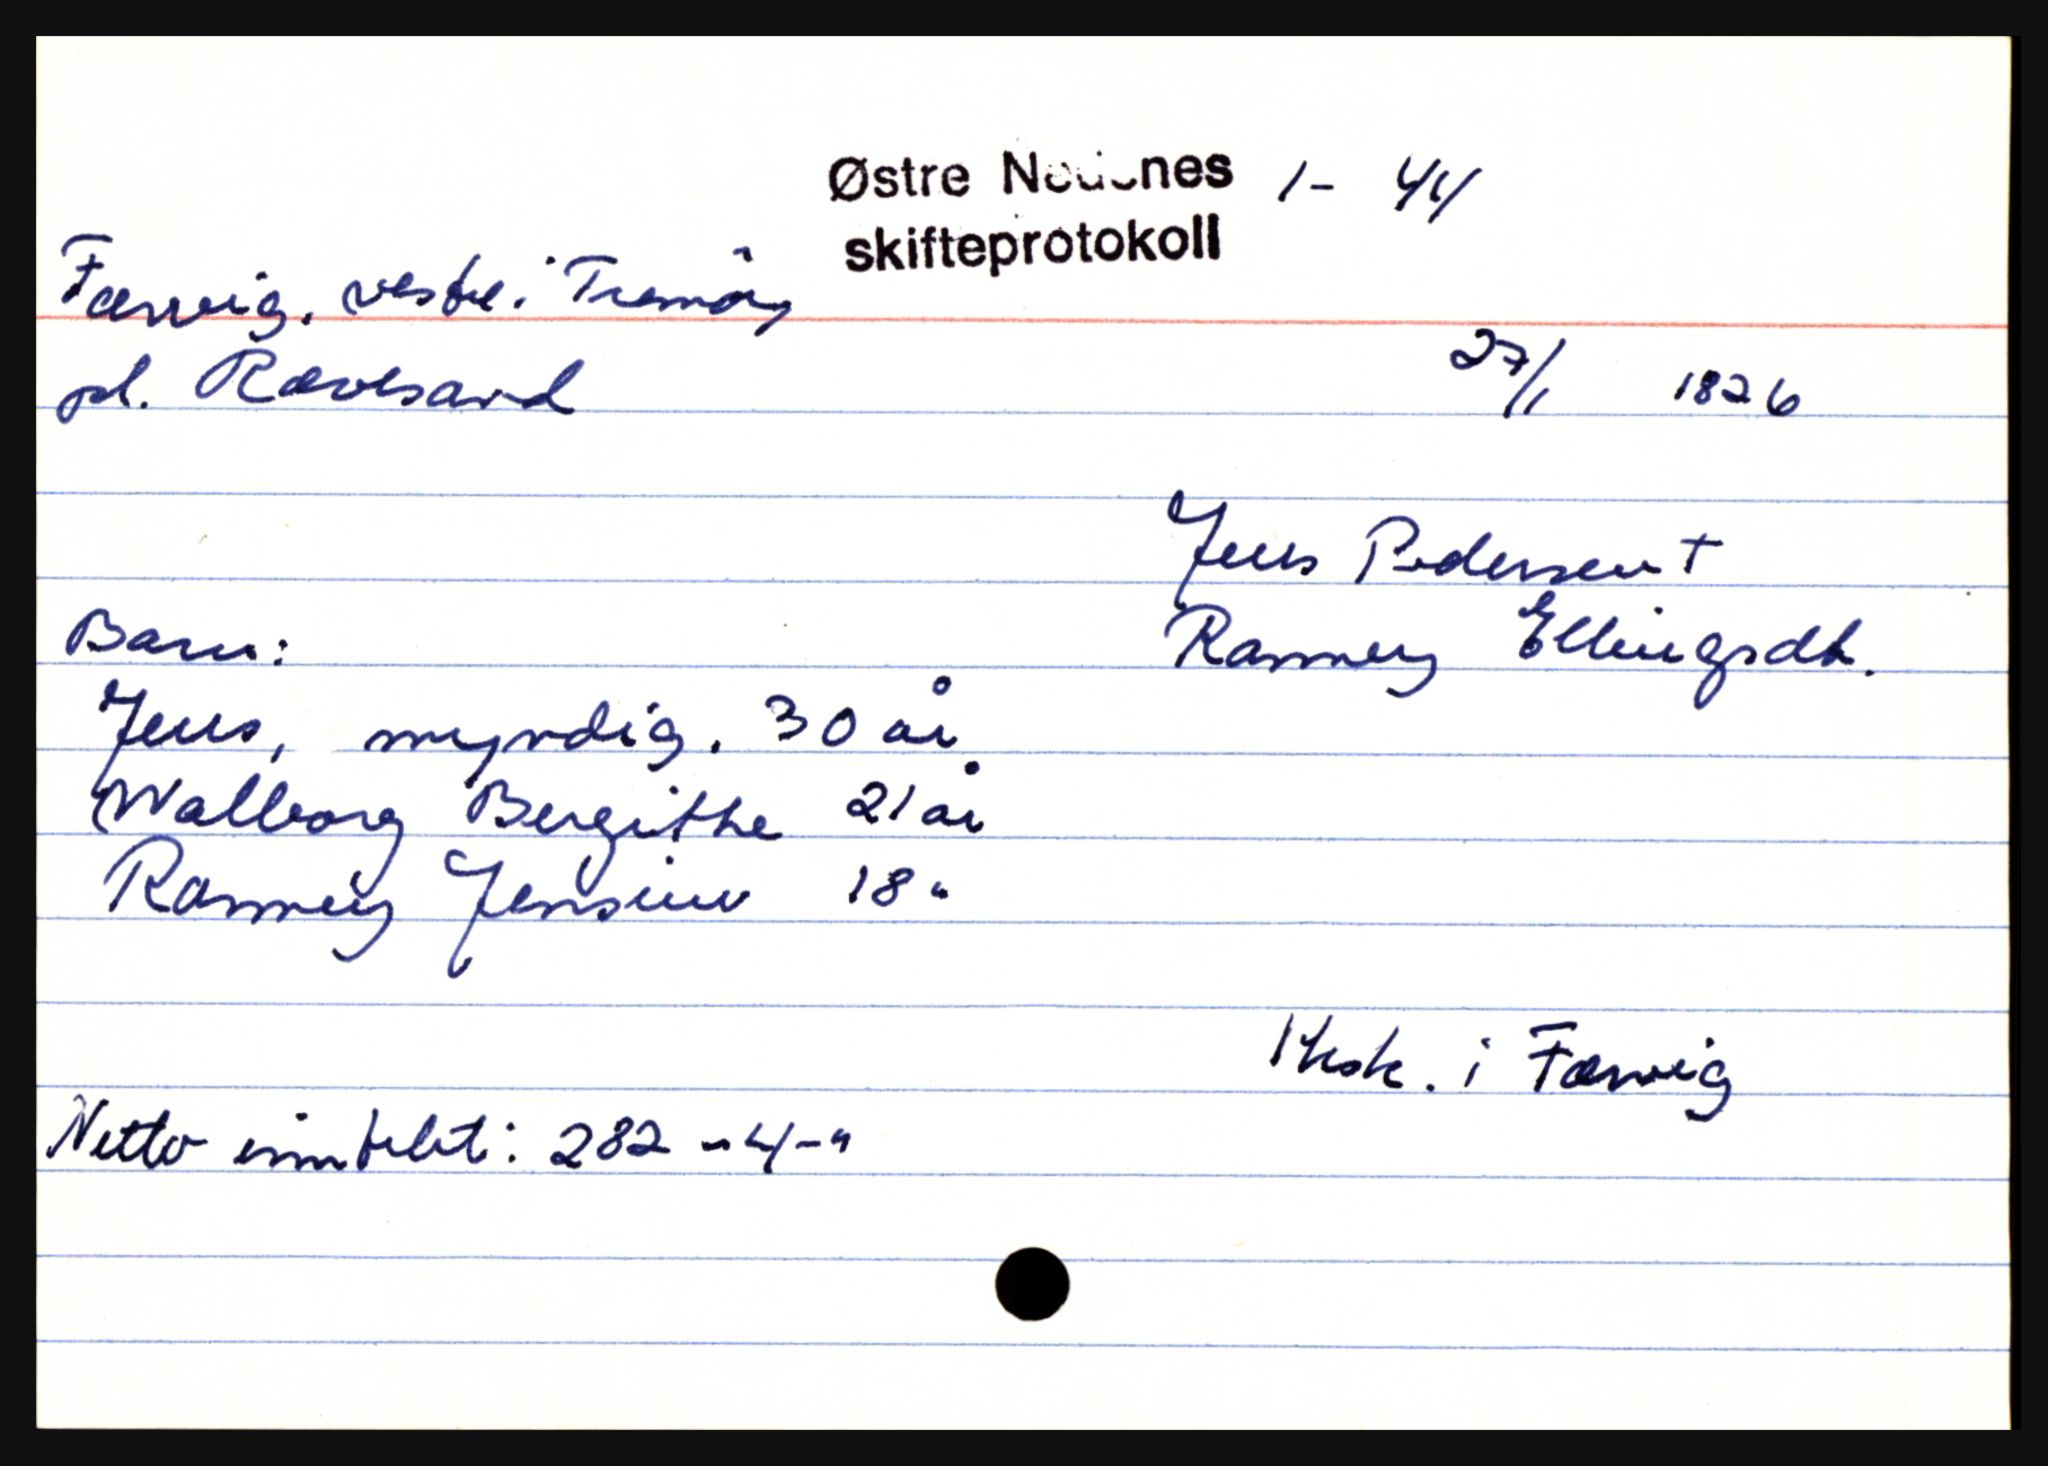 Østre Nedenes 1- 44
skifteprotokoll
Færvig. vestre i Tromöy
pl. Rævesand
27/1 1826
Jens Pedersen †
Ranney Ellingsdt.
Barn:
Jens, myndig. 30 år
Walborg Bergithe 21 år
Ranneig Jensine 18 "
i Færvig
Netto : 282 - 4 - "